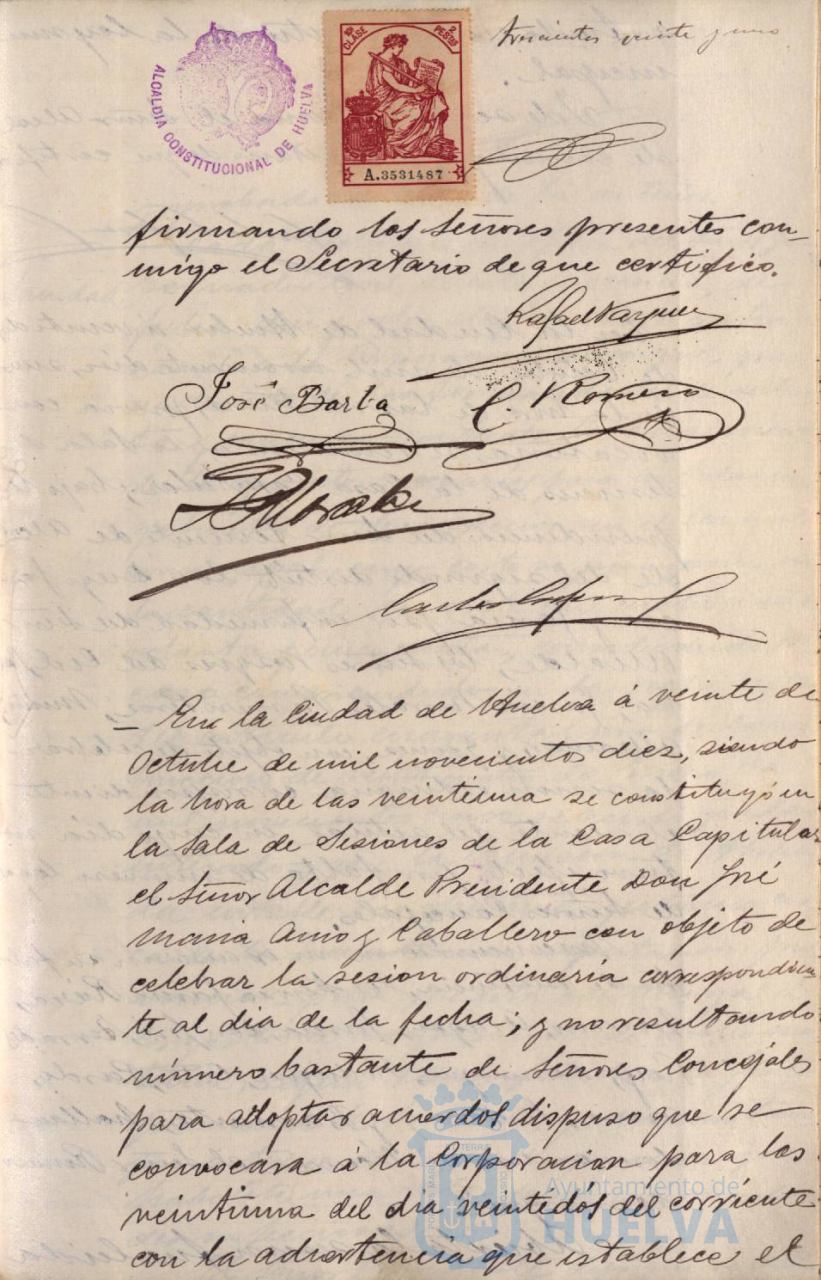 trescientos veinte y uno
ALCALDIA CONSTITUCIONAL DE HUELVA
10ª CLASE 2 PESETAS
A.3531487
firmando los Señores presentes con-
migo el Secretario de que certifico.
Rafael Vazquez
José Barba C. Romero
Morales
Carlos
– En la Ciudad de Huelva á veinte de
Octubre de mil novecientos diez, siendo
la hora de las veintiuna se constituyó en
la Sala de Sesiones de la Casa Capitular
el Señor Alcalde Presidente Don José
Maria Amo y Caballero con objeto de
celebrar la sesion ordinaria correspondien
te al dia de la fecha; y no resultando
número bastante de Señores Concejales
para adoptar acuerdos dispuso que se
convocara á la Corporacion para las
veintiuna del dia veintidos del corriente
con la advertencia que establece el
Ayuntamiento de
HUELVA